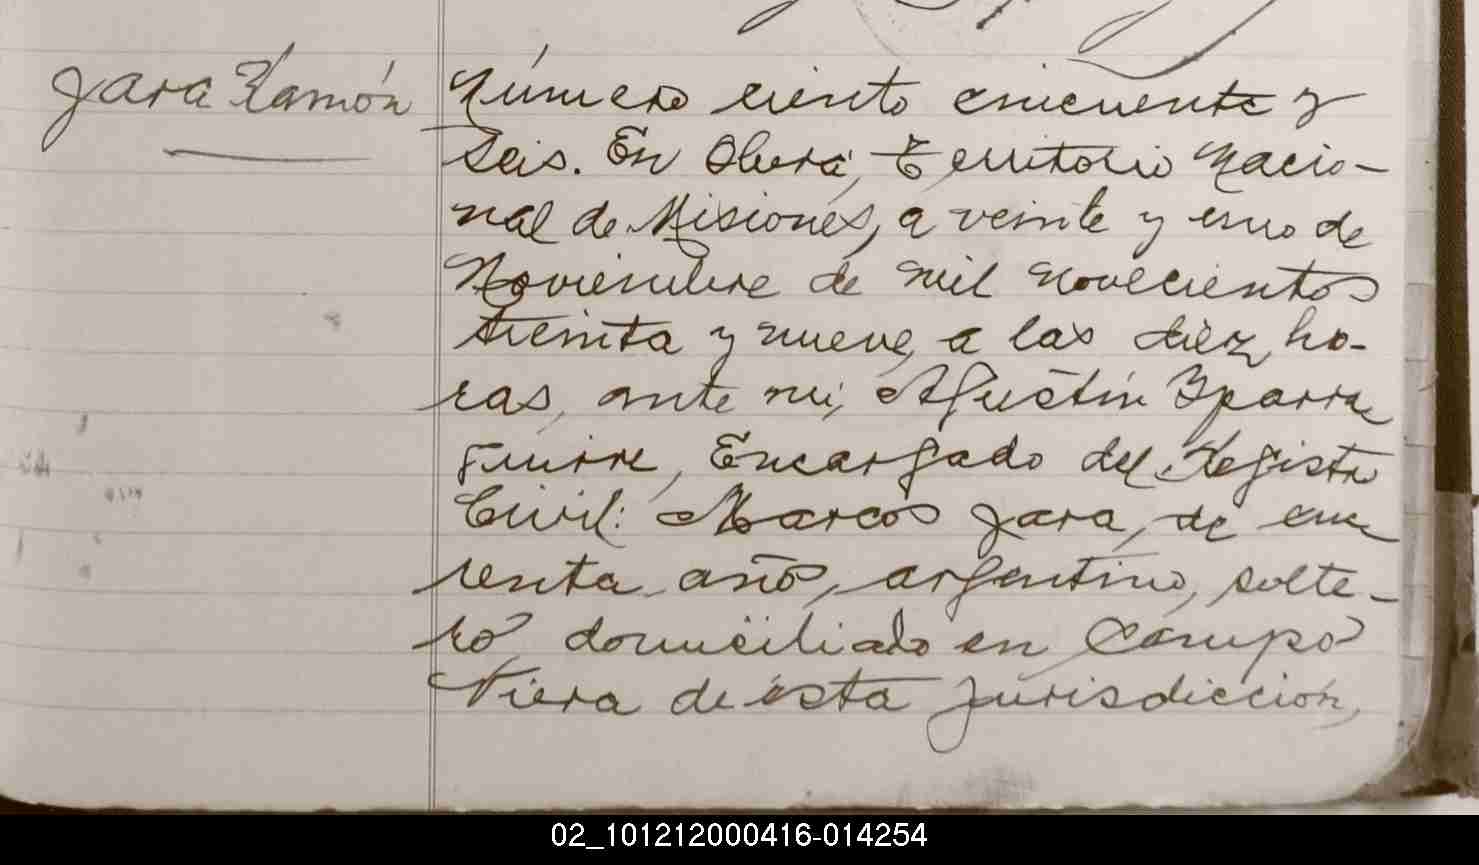 Jara Ramón
Número ciento cincuenta y
seis. En Oberá, Territorio Nacio-
nal de Misiones, a veinte y uno de
Noviembre de mil novecientos
treinta y nueve, a las diez ho-
ras, ante mi, Agustín Yparra
guirre, Encargado del Registro
Civil: Marcos Jara, de cua
renta años, argentino, solte-
ro, domiciliado en Campo
Viera de ésta jurisdicción,
02_101212000416-014254